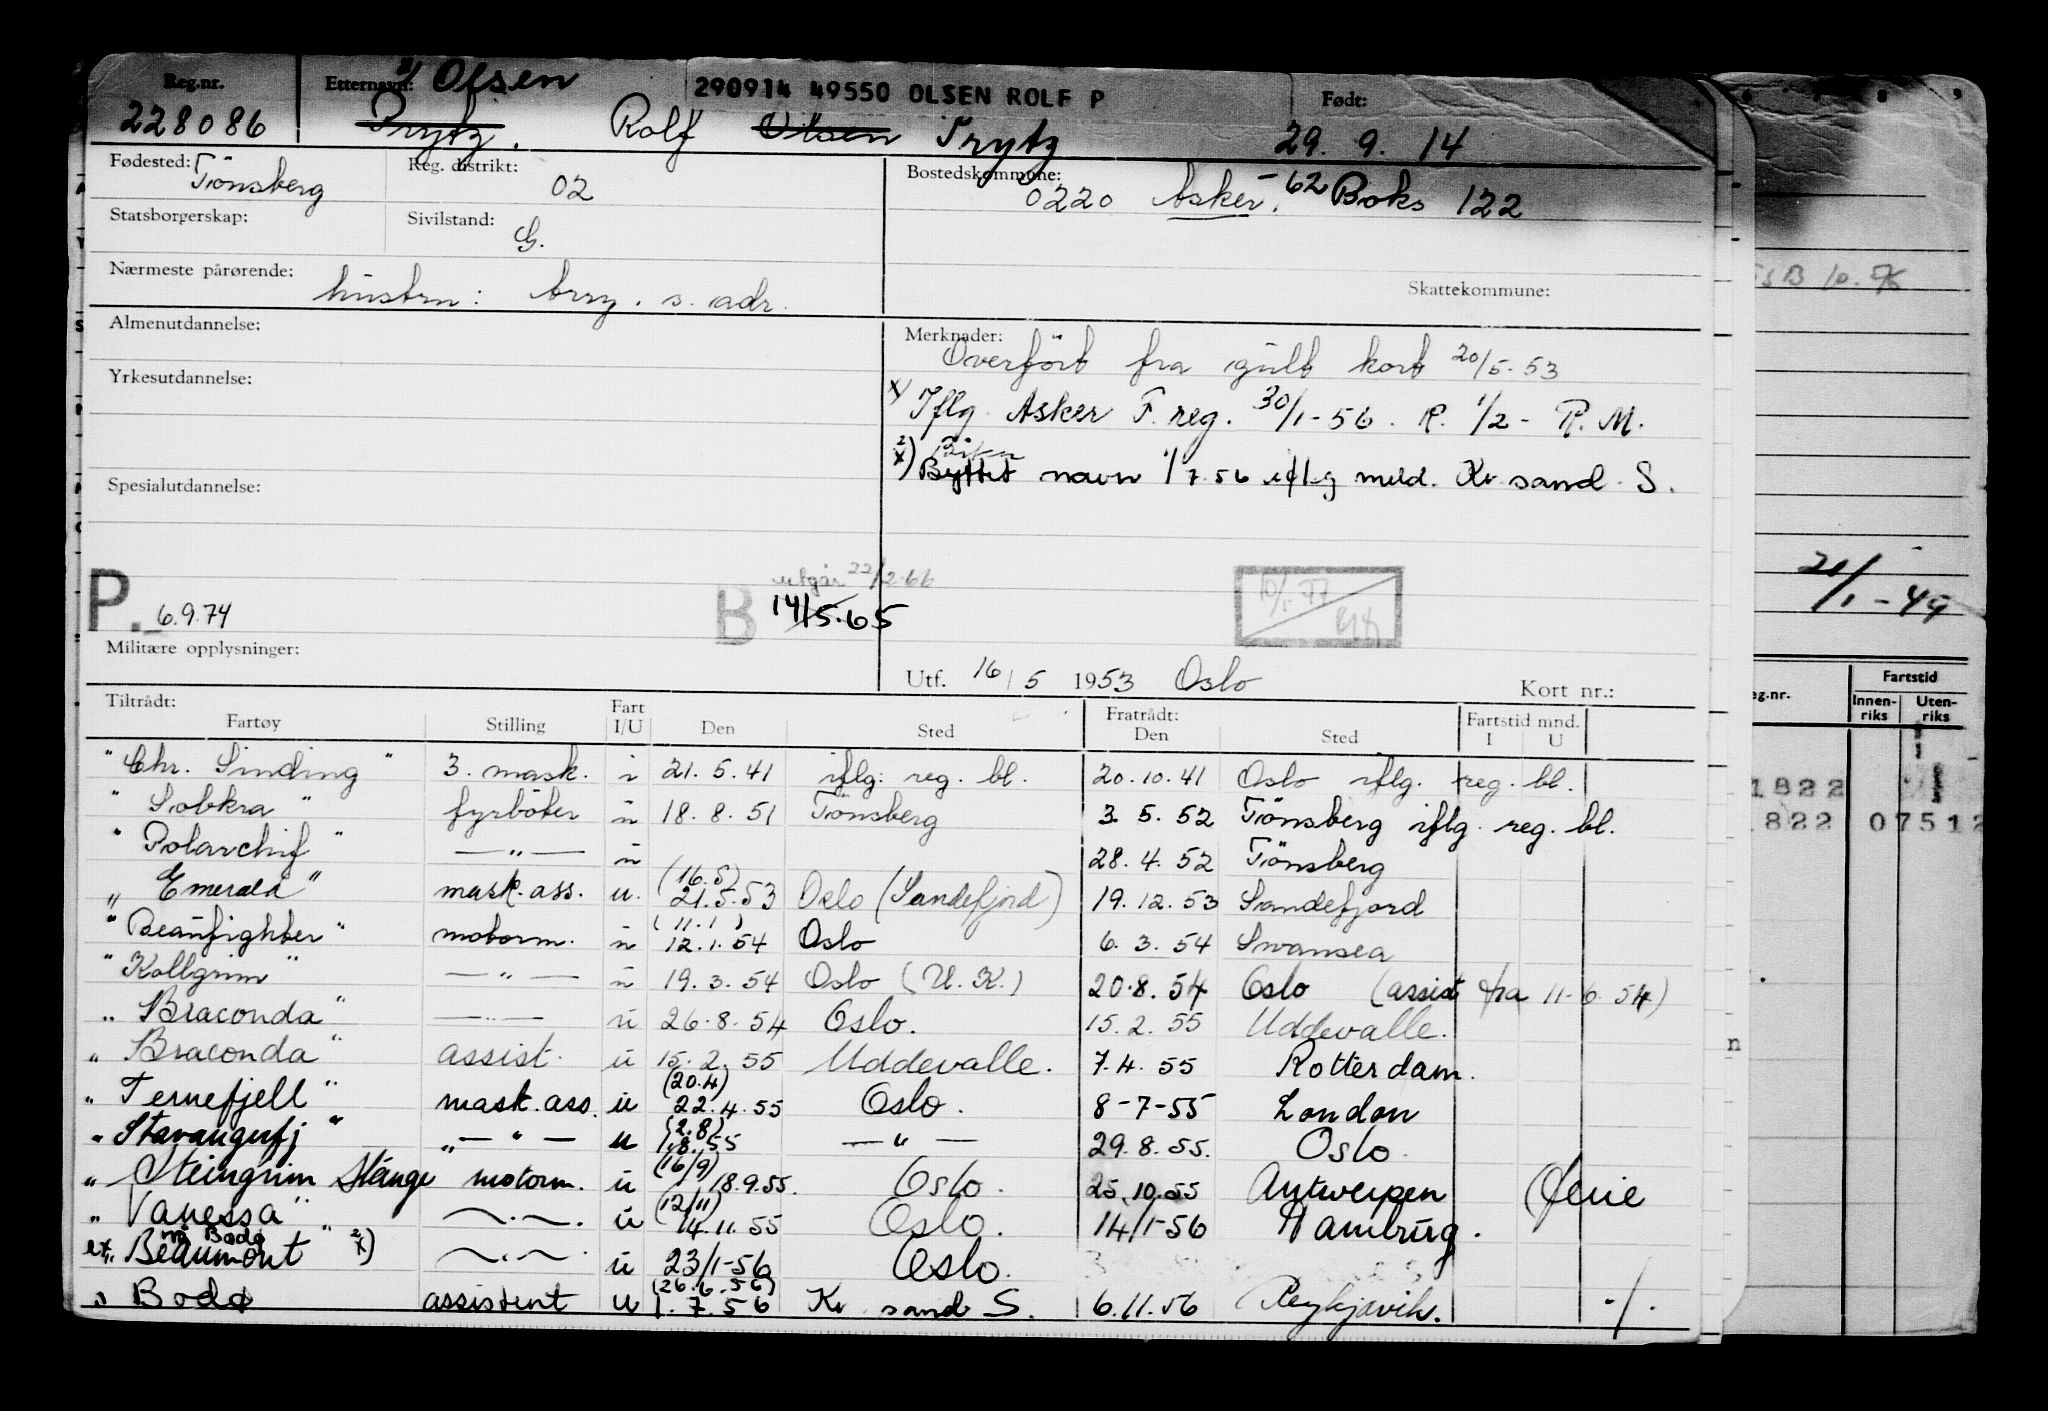 Reg.nr. Etternavn: x) Olsen 290914 49550 OLSEN ROLF P Født:
228086 Prytz. Rolf Olsen Prytz 29. 9. 14
Fødested: Tönsberg Reg. distrikt: 02 Bostedskommune: 0220 Asker. - 62 Boks 122
Statsborgerskap: Sivilstand: G.
Nærmeste pårørende: hustru: s. adr. Skattekommune:
Almenutdannelse: Merknader: Overfört fra gult kort 20/5-53
Yrkesutdannelse: x) Iflg. Asker F. reg. 30/1-56. R. 1/2- R. M.
Spesialutdannelse: 2x) Byttet navn 1/7.56 iflg meld. Kr. sand. S.
20/1-49
P. 6.9.74 B utgår 22/2-66 14/5.65 10/1-77
Militære opplysninger: Utf. 16/5 1953 Oslo Kort nr.:
Tiltrådt: Fartøy Stilling Fart I/U Den Sted Fratrådt: Den Sted Fartstid mnd. I U
eg.nr. Fartstid Innen-riks Uten-riks
" Chr. Sinding " 3. mask. i 21. 5. 41 iflg. reg. bl. 20.10.41 Oslo iflg. reg. bl.
1822
" Solökra " fyrböter u 18. 8. 51 Tönsberg 3. 5. 52 Tönsberg iflg. reg. bl.
822 07512
" Polarchief " — " — u 28. 4. 52 Tönsberg
" Emerald " mask. ass. u. (16.5) 21.5.53 Oslo (Sandefjord) 19.12.53 Sandefjord
" Beaufighter " motorm. u (11.1) 12.1.54 Oslo 6. 3. 54 Swansea
" Kollgrim " — " — u 19. 3. 54 Oslo (U. K.) 20.8.54 Oslo (assist fra 11-6. 54)
" Braconda " — " — u 26.8.54 Oslo. 15. 2. 55 Uddevalle.
" Braconda " assist. u 15. 2. 55 Uddevalle. 7.4. 55 Rotterdam.
" Ternefjell " mask. ass. u (20.4) 22.4.55 Oslo. 8-7-55 London
" Stavangerfj " " — " — u (2.8) 1.8.55 — " — 29.8.55. Oslo.
" Steingrim Slänge motorm. u (16/9) 18.9.55. Oslo. 25.10.55 Antwerpen
" Vanessa " — " — u (12/11) 14.11.55 Oslo. 14/1-56 Hamburg.
ex " Beaumont " nå Bodø 2x) — " — u 23/1-56 Oslo.
" Bodø assistent u (26.6.56) 1.7.56 Kr sand S. 6.11.56 Reykjavik. ./.